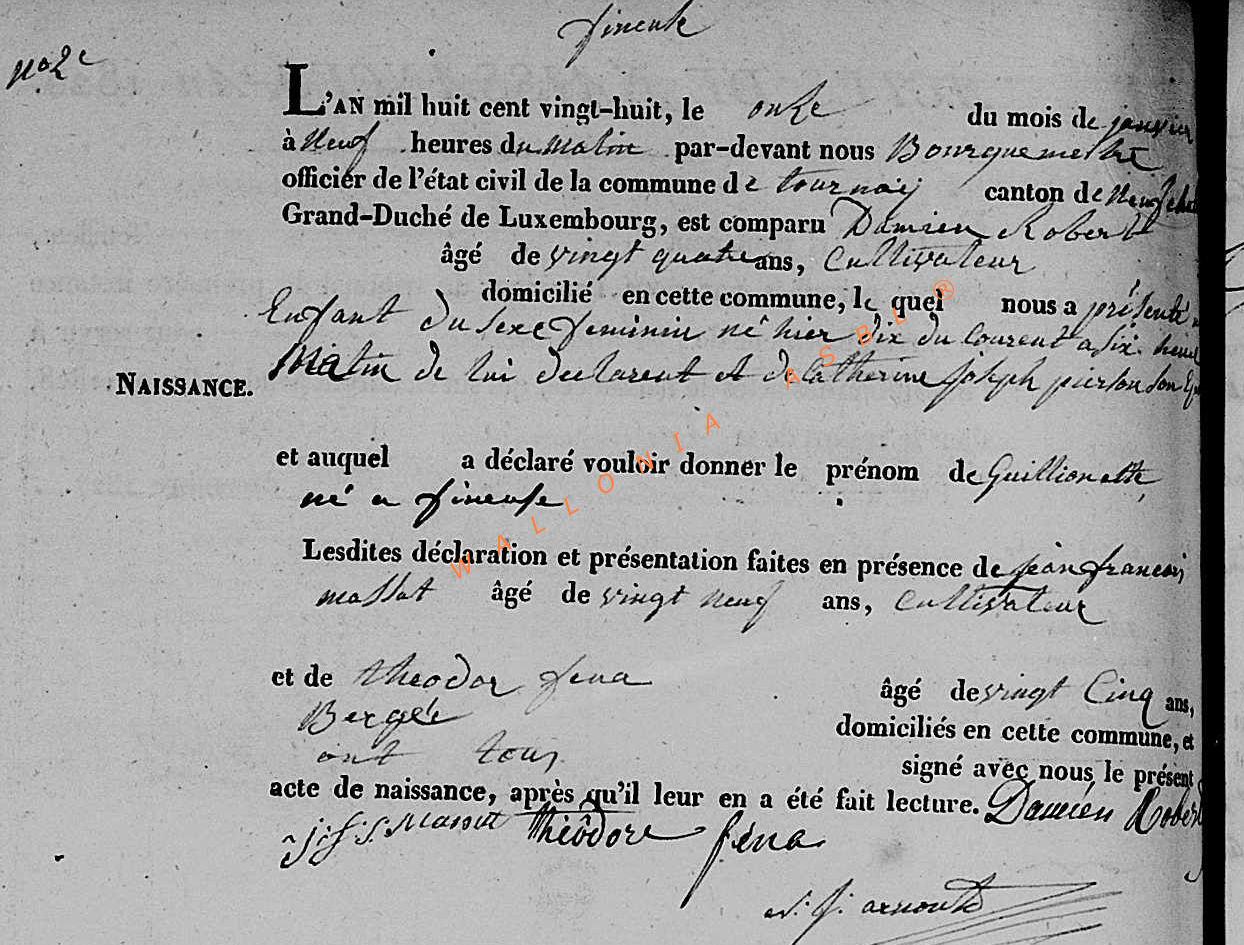 fineuse
no 2e
L'AN mil huit cent vingt-huit, le onze du mois de janvier
à neuf heures du matin par-devant nous Bourguemestre
officier de l'état civil de la commune de tournay canton de
Grand-Duché de Luxembourg, est comparu Damien Robert
âgé de vingt quatre ans, Cultivateur
domicilié en cette commune, le quel nous a présenté
Enfant du sexe feminin né hier dix du courent a six heure
NAISSANCE.
Matin de lui declarent et de Catherine joseph pierson son
et auquel a déclaré vouloir donner le prénom de Guillionette
né a fineuse
Lesdites déclaration et présentation faites en présence de jean francois
massut âgé de vingt neuf ans, Cultivateur
et de theodor fena âgé de vingt Cinq ans,
Bergée domiciliés en cette commune, et
ont tous signé avec nous le présent
acte de naissance, après qu'il leur en a été fait lecture. Damien Robert
Massut théodore féna
arnould
WALLONIA ASBL®